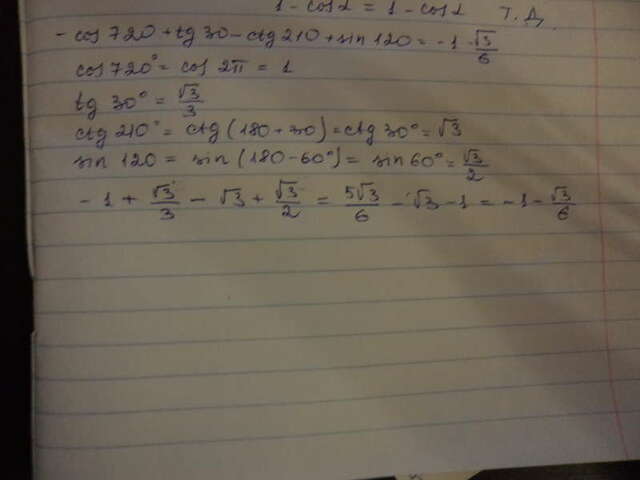 1 - cos α = 1 - cos α Т.Д.
- cos 720 + tg 30 - ctg 210 + sin 120 = -1 - √3/6
cos 720° = cos 2π = 1
tg 30° = √3/3
ctg 210° = ctg (180 + 30) = ctg 30° = √3
sin 120 = sin (180 - 60°) = sin 60° = √3/2
- 1 + √3/3 - √3 + √3/2 = 5√3/6 - √3 - 1 = -1 - √3/6